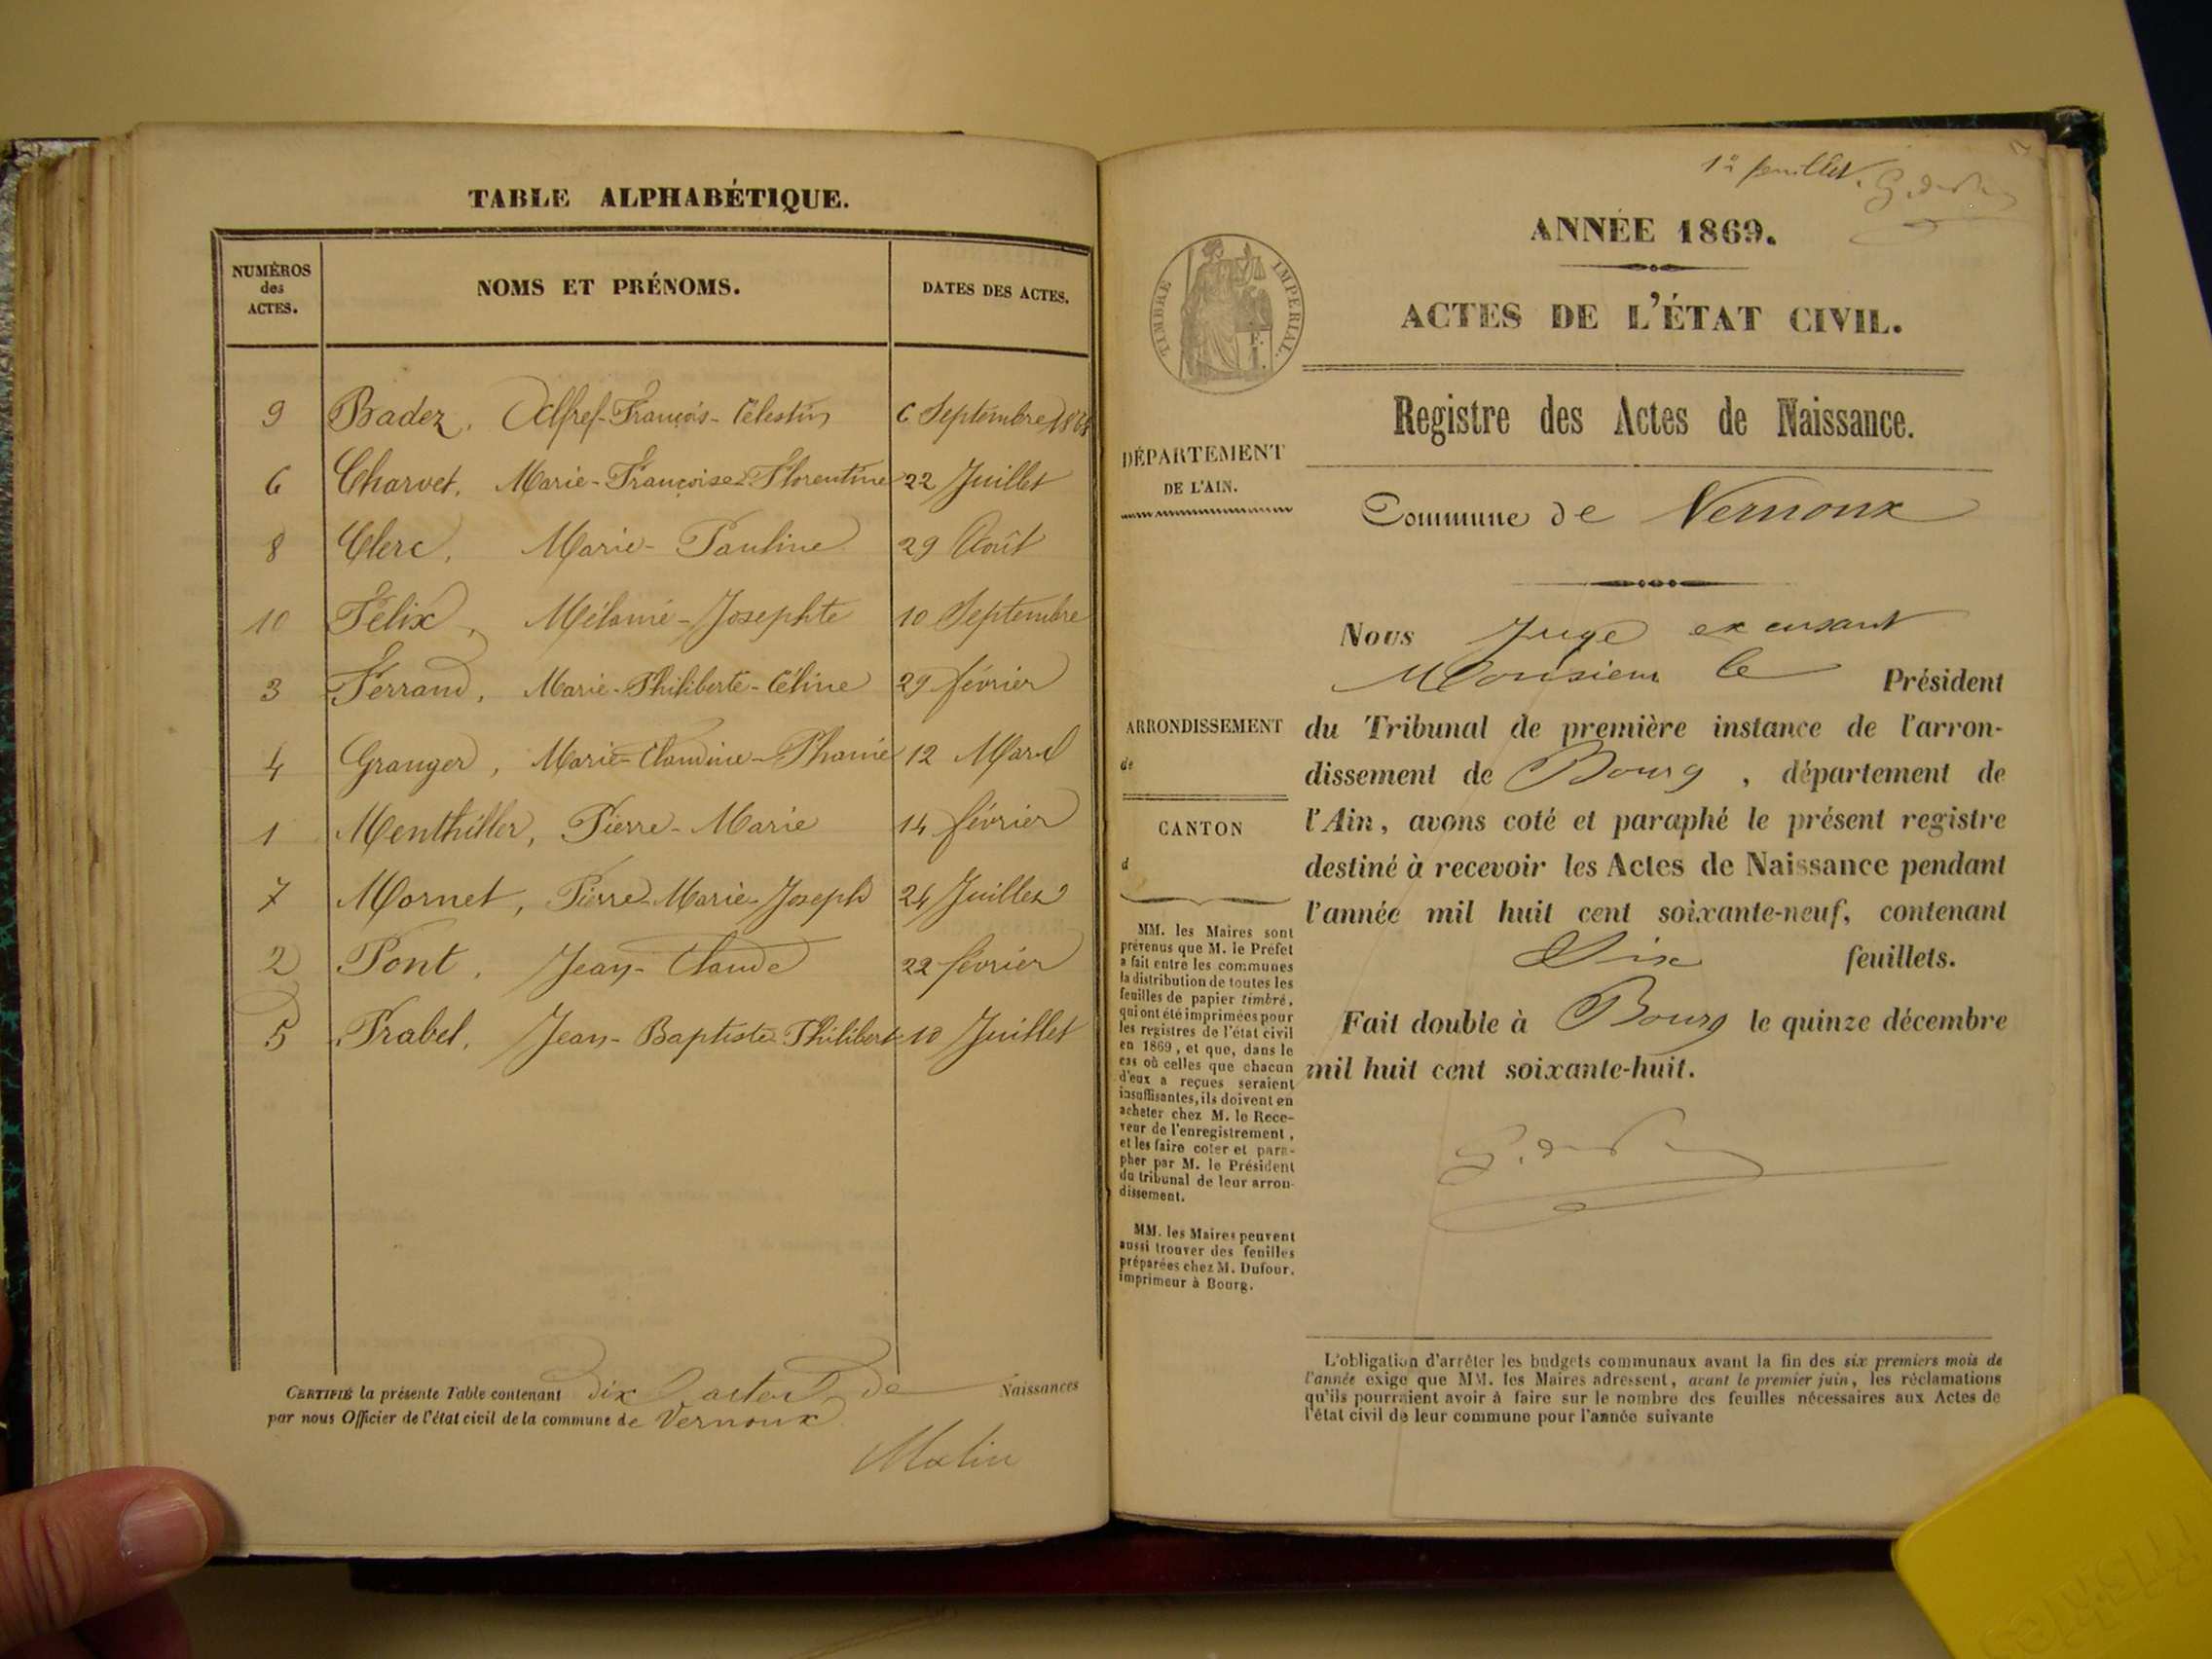 TABLE ALPHABÉTIQUE.
NUMÉROS des ACTES.
NOMS ET PRÉNOMS.
DATES DES ACTES.
9 Badez, Alfref-François-Célestin 6 Septembre 1868
6 Charvet, Marie-Françoise-Florentine 22 Juillet
8 Clerc, Marie-Pauline 29 Août
10 Félix, Mélanie-Josephte 10 Septembre
3 Ferrand, Marie-Philiberte-Céline 29 février
4 Granger, Marie-Claudine-Phanie 12 Mars
1 Menthiller, Pierre-Marie 14 février
7 Mornet, Pierre-Marie-Joseph 24 Juillet
2 Pont, Jean-Claude 22 février
5 Prabel, Jean-Baptiste-Philibert 10 Juillet
CERTIFIÉ la présente Table contenant dix actes de Naissances
par nous Officier de l'état civil de la commune de Vernoux
1er feuillet.
ANNÉE 1869.
TIMBRE IMPERIAL.
ACTES DE L'ÉTAT CIVIL.
Registre des Actes de Naissance.
DÉPARTEMENT
DE L'AIN.
Commune de Vernoux
Nous Juge excusant
Monsieur le Président
ARRONDISSEMENT
de
CANTON
d
du Tribunal de première instance de l'arron-
dissement de Bourg, département de
l'Ain, avons coté et paraphé le présent registre
destiné à recevoir les Actes de Naissance pendant
l'année mil huit cent soixante-neuf, contenant
Six feuillets.
Fait double à Bourg le quinze décembre
mil huit cent soixante-huit.
MM. les Maires sont
prévenus que M. le Préfet
a fait entre les communes
la distribution de toutes les
feuilles de papier timbré,
qui ont été imprimées pour
les registres de l'état civil
en 1869, et que, dans le
cas où celles que chacun
d'eux a reçues seraient
insuffisantes, ils doivent en
acheter chez M. le Rece-
veur de l'enregistrement,
et les faire coter et para-
pher par M. le Président
du tribunal de leur arron-
dissement.
MM. les Maires peuvent
aussi trouver des feuilles
préparées chez M. Dufour,
imprimeur à Bourg.
L'obligation d'arrêter les budgets communaux avant la fin des six premiers mois de
l'année exige que MM. les Maires adressent, avant le premier juin, les réclamations
qu'ils pourraient avoir à faire sur le nombre des feuilles nécessaires aux Actes de
l'état civil de leur commune pour l'année suivante